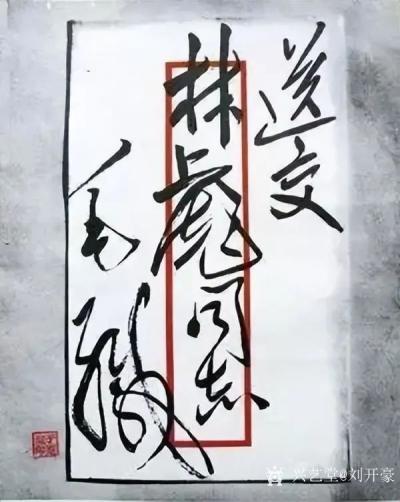 送交
林彪同志
毛缄
兴艺堂@刘开豪